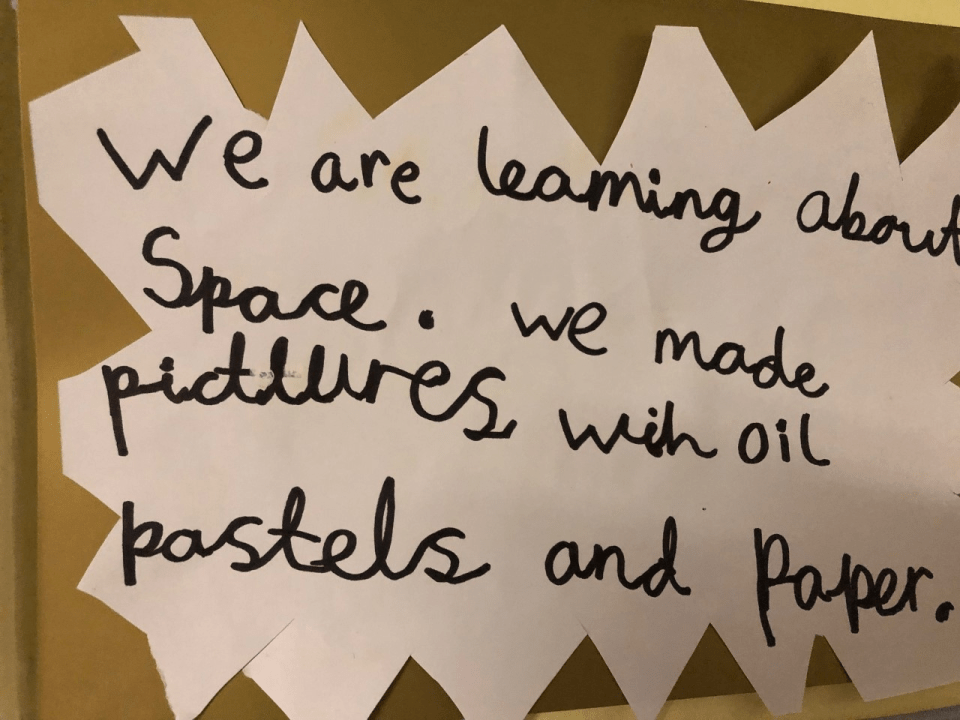 We are learning about
Space. we made
picttures with oil
pastels and Paper.